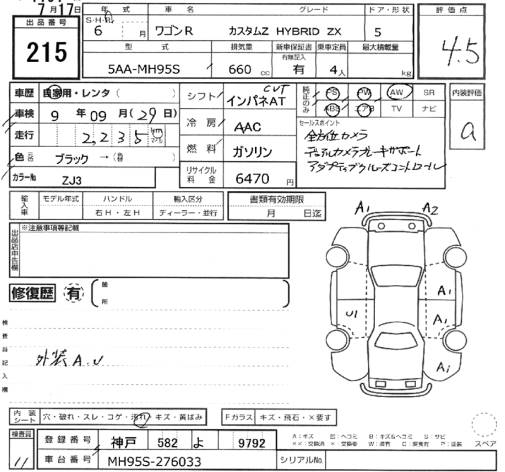 7月17日
出品番号
215
年式
S・H・R
6 月
車名
ワゴンR
グレード
カスタムZ HYBRID ZX
ドア・形状
5
評価点
4.5
型式
5AA-MH95S
排気量
660 cc
新車保証書
有無記入
有
乗車定員
4人
最大積載量
kg
車歴 自家用・レンタ( )
車検 9年09月(29日)
走行 2,235 km
色 ブラック → ( )
カラーNo ZJ3
シフト CVT インパネAT
冷房 AAC
燃料 ガソリン
リサイクル料金 6470円
純正のみ
PS PW AW SR
ABS エアB TV ナビ
セールスポイント
全方位カメラ
デュアルカメラブレーキサポート
アダプティブクルーズコントロール
内装評価
a
輸入車
モデル年式
ハンドル
右H・左H
輸入区分
ディーラー・並行
書類有効期限
月 日迄
出品店申告欄
※注意事項等記載
修復歴 有
箇所
検査員記入欄
外装A.U
A1 A2
U1
A1
A1
A1
内装シート
穴・破れ・スレ・コゲ・汚れ・キズ・黄ばみ
Fガラス キズ・飛石・×要す
スペア
検査員
11
登録番号 神戸 582 よ 9792
車台番号 MH95S-276033
シリアルNo.